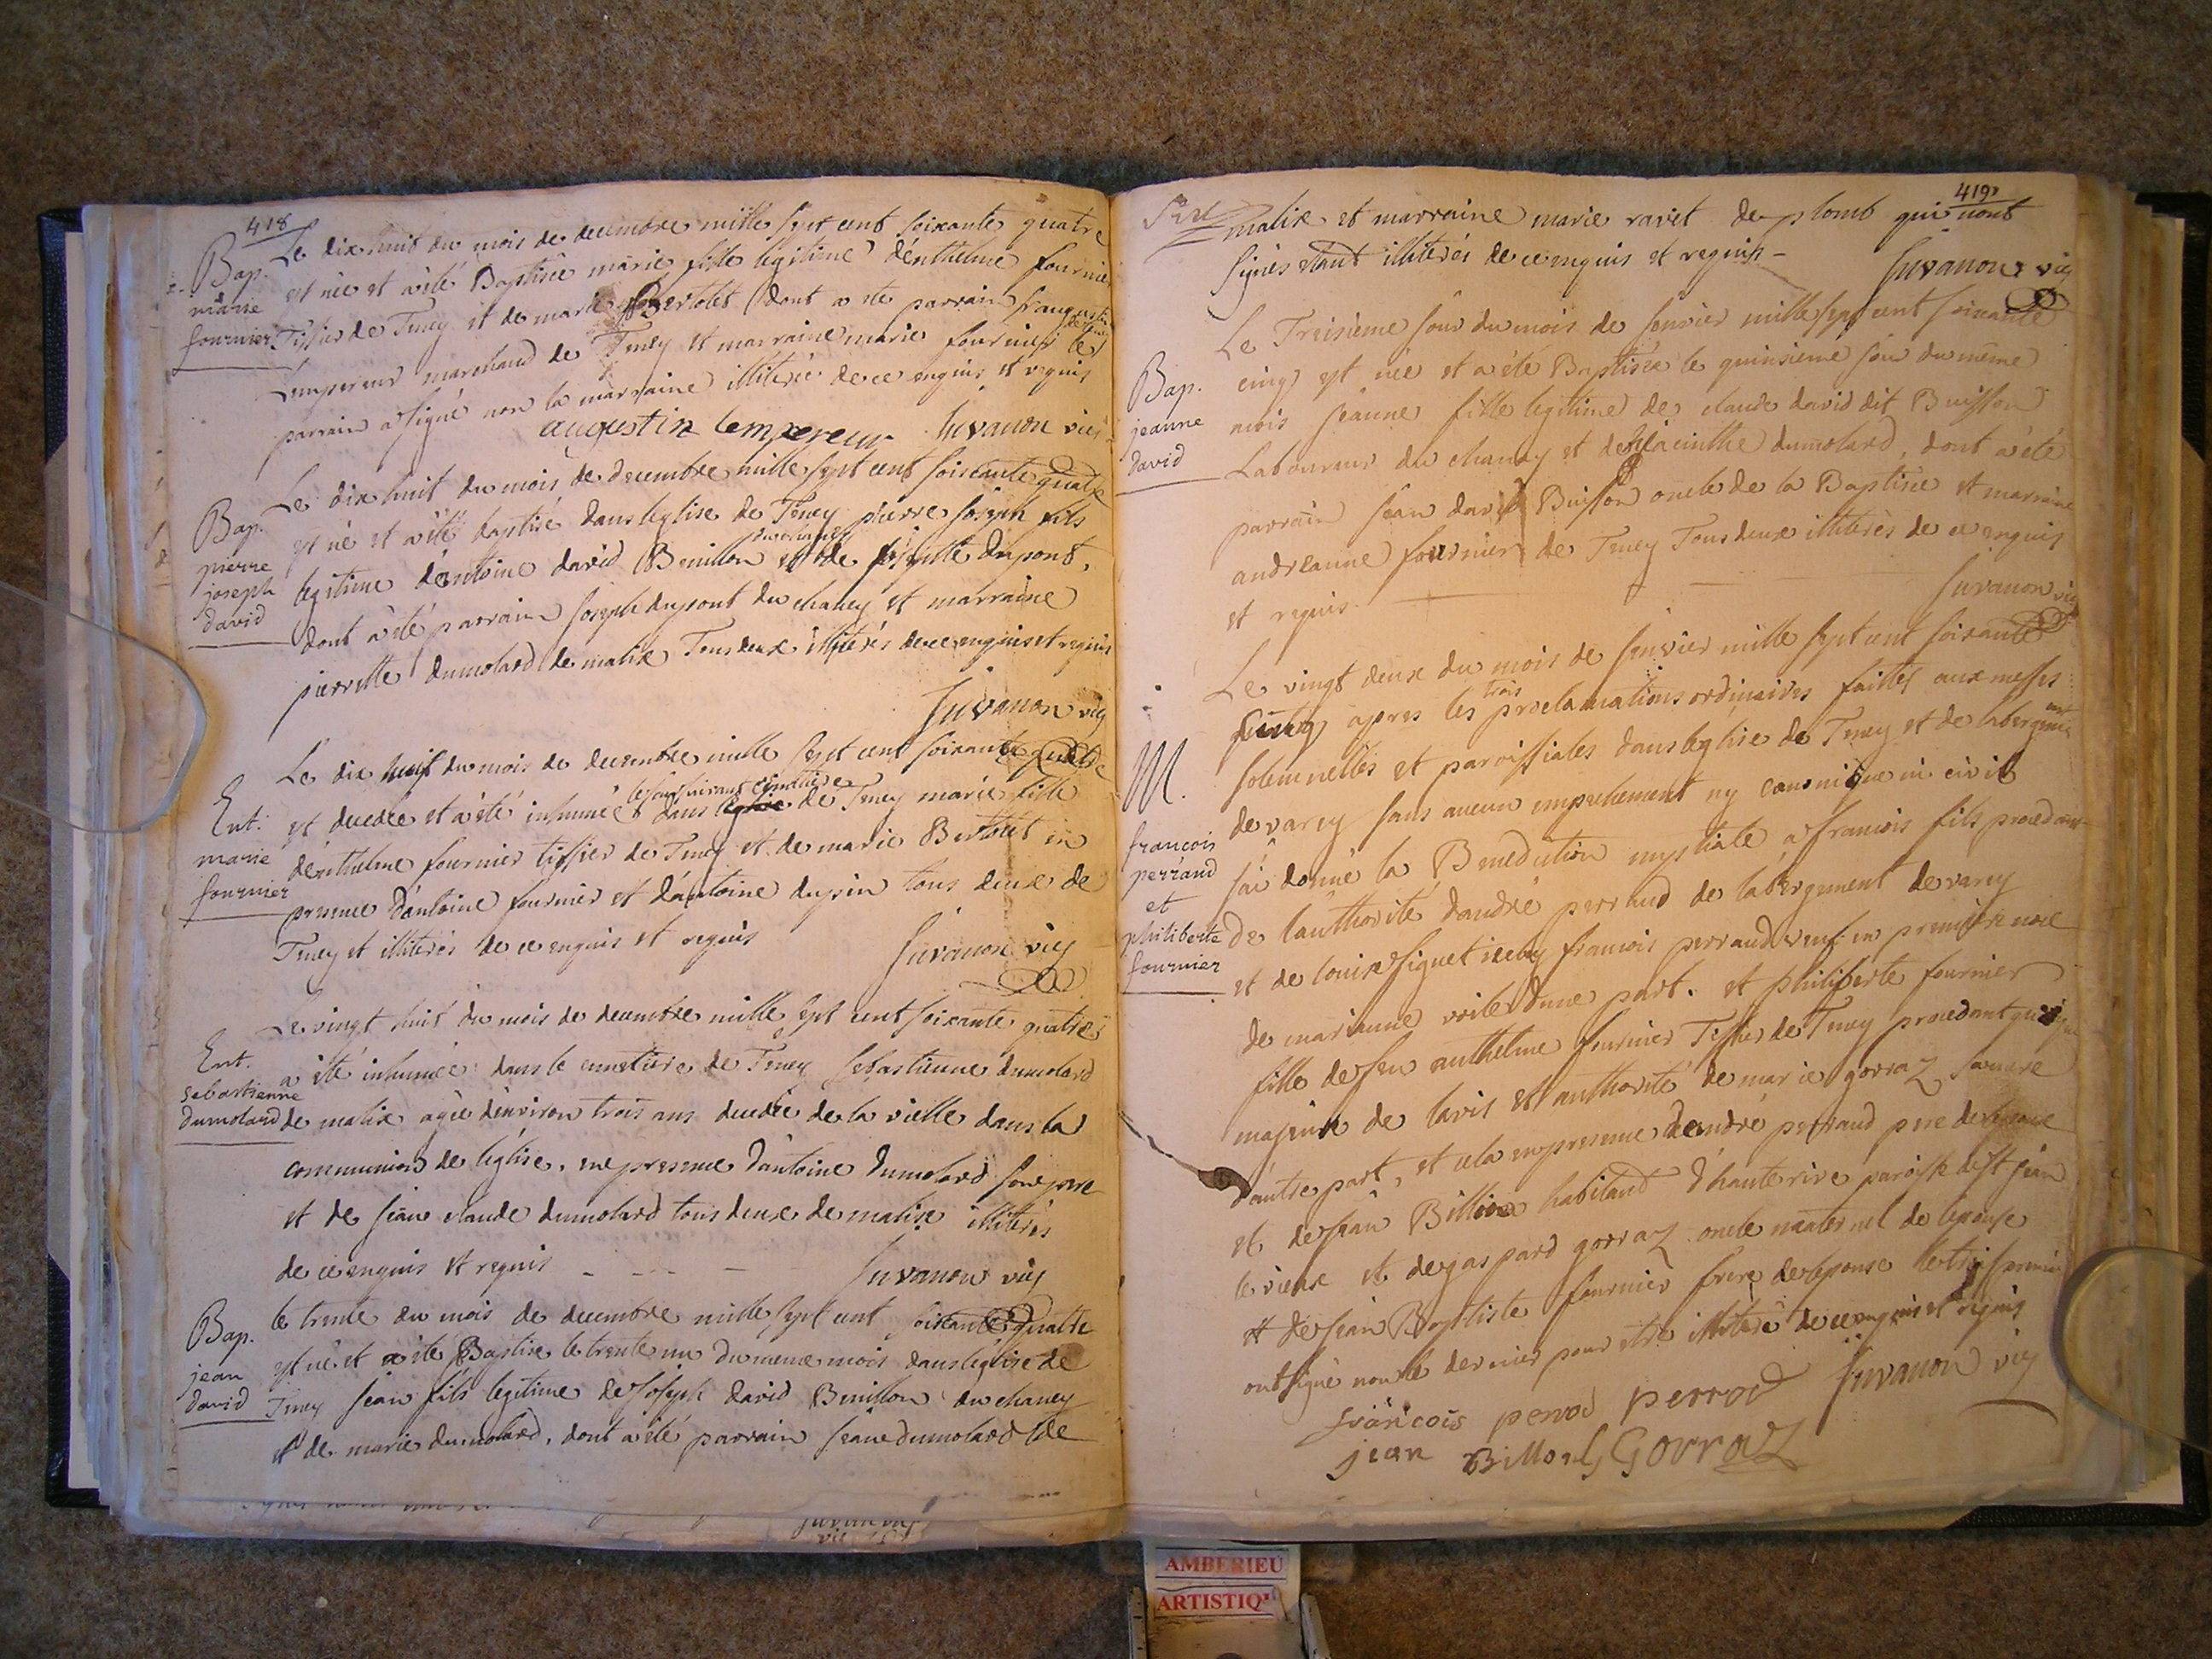 418
Le dix huit du mois de decembre mille sept cent soixante quatre
Bap. marie fournier
est née et a été Baptisée marie fille legitime d'énthelme fournier
Tissier de Tenay et de marie Bertolet dont a ete parrain
Lempereur marchand de Tenay et marraine marie fournier le
parrain a signé non la marraine illiterée de ce enquis et requis
augustin lempereur Juvanon vic
Le dix huit du mois de decembre mille sept cent soixante quatre
Bap. pierre joseph david
est né et a été baptisé dans leglise de Tenay pierre joseph fils
legitime d'entoine david Benillon et de josepte dupont,
dont a été parrain joseph dupont du chaney et marraine
pierrette dumolard de malix Tous deux illiterés de ce enquis et requis
Juvanon vic
Le dix neuf du mois de decembre mille sept cent soixante quatre
le jour suivant cimetiere
Ent. marie fournier
est decedée et a été inhumée dans leglise de Tenay marie fille
dénthelme fournier tissier de Tenay et de marie Bertolet en
presence d'antoine fournier et d'antoine dupin tous deux de
Tenay et illiterés de ce enquis et requis Juvanon vic
Le vingt huit du mois de decembre mille sept cent soixante quatre
Ent. sebastienne dumolard
a été inhumée dans le cimetiere de Tenay sebastienne dumolard
de malix agée d'environ trois ans decedée de la vielle dans la
communion de léglise, en presence d'antoine dumolard son pere
et de jean claude dumolard tous deux de malix illiterés
de ce enquis et requis - - - - Juvanon vic
Bap. jean david
le trente du mois de decembre mille sept cent soixante quatre
est né et a été Baptisé le trente un du meme mois dans leglise de
Tenay jean fils legitime de joseph david Benillon du chaney
et de marie dumolard, dont a été parrain jean dumolard de
419
malix et marraine marie ravet de plomb qui nont
signés étant illiterés de ce enquis et requis - Juvanon vic
Le Treisieme jour du mois de janvier mille sept cent soixante
Bap. jeanne david
cinq est née et a été Baptisée le quinsieme jour du même
mois jeanne fille legitime de claude david dit Buisson
Laboureur du chaney et de hiacinthe dumolard, dont a été
parrain jean david Buisson oncle de la Baptisée et marraine
andréanne fournier de Tenay Tous deux illiterés de ce enquis
et requis. Juvanon vic
Le vingt deux du mois de janvier mille sept cent soixante
cinq apres les trois proclamations ordinaires faittes aux messes
M. francois perrand et philiberte fournier
solemnelles et paroissiales dans leglise de Tenay et de labergement
de varey sans aucun empechement ny canonique ni civil
j'ai donné la Benediction nuptiale a francois fils procedant
de l'authorité d'andré perraud de labergement de varey
et de louise siguet francois perraud veuf en premiere noce
de marianne d'une part. et philiberte fournier
fille de feu anthelme fournier Tissier de Tenay procedant
majeure de lavis et authorité de marie gorraz sa mere
d'autre part, et cela en presence d'andré perraud pere de
et de jean Billion habitant d'hauterive paroisse de st jean
le vieux et de gaspard gorraz oncle maternel de lepouse
et de jean Baptiste fournier frere de lepouse les trois premier
ont signé non le dernier pour etre illiteré de ce enquis et requis
francois perrod perrod Juvanon vic
jean Gorraz
AMBERIEU
ARTISTIQ